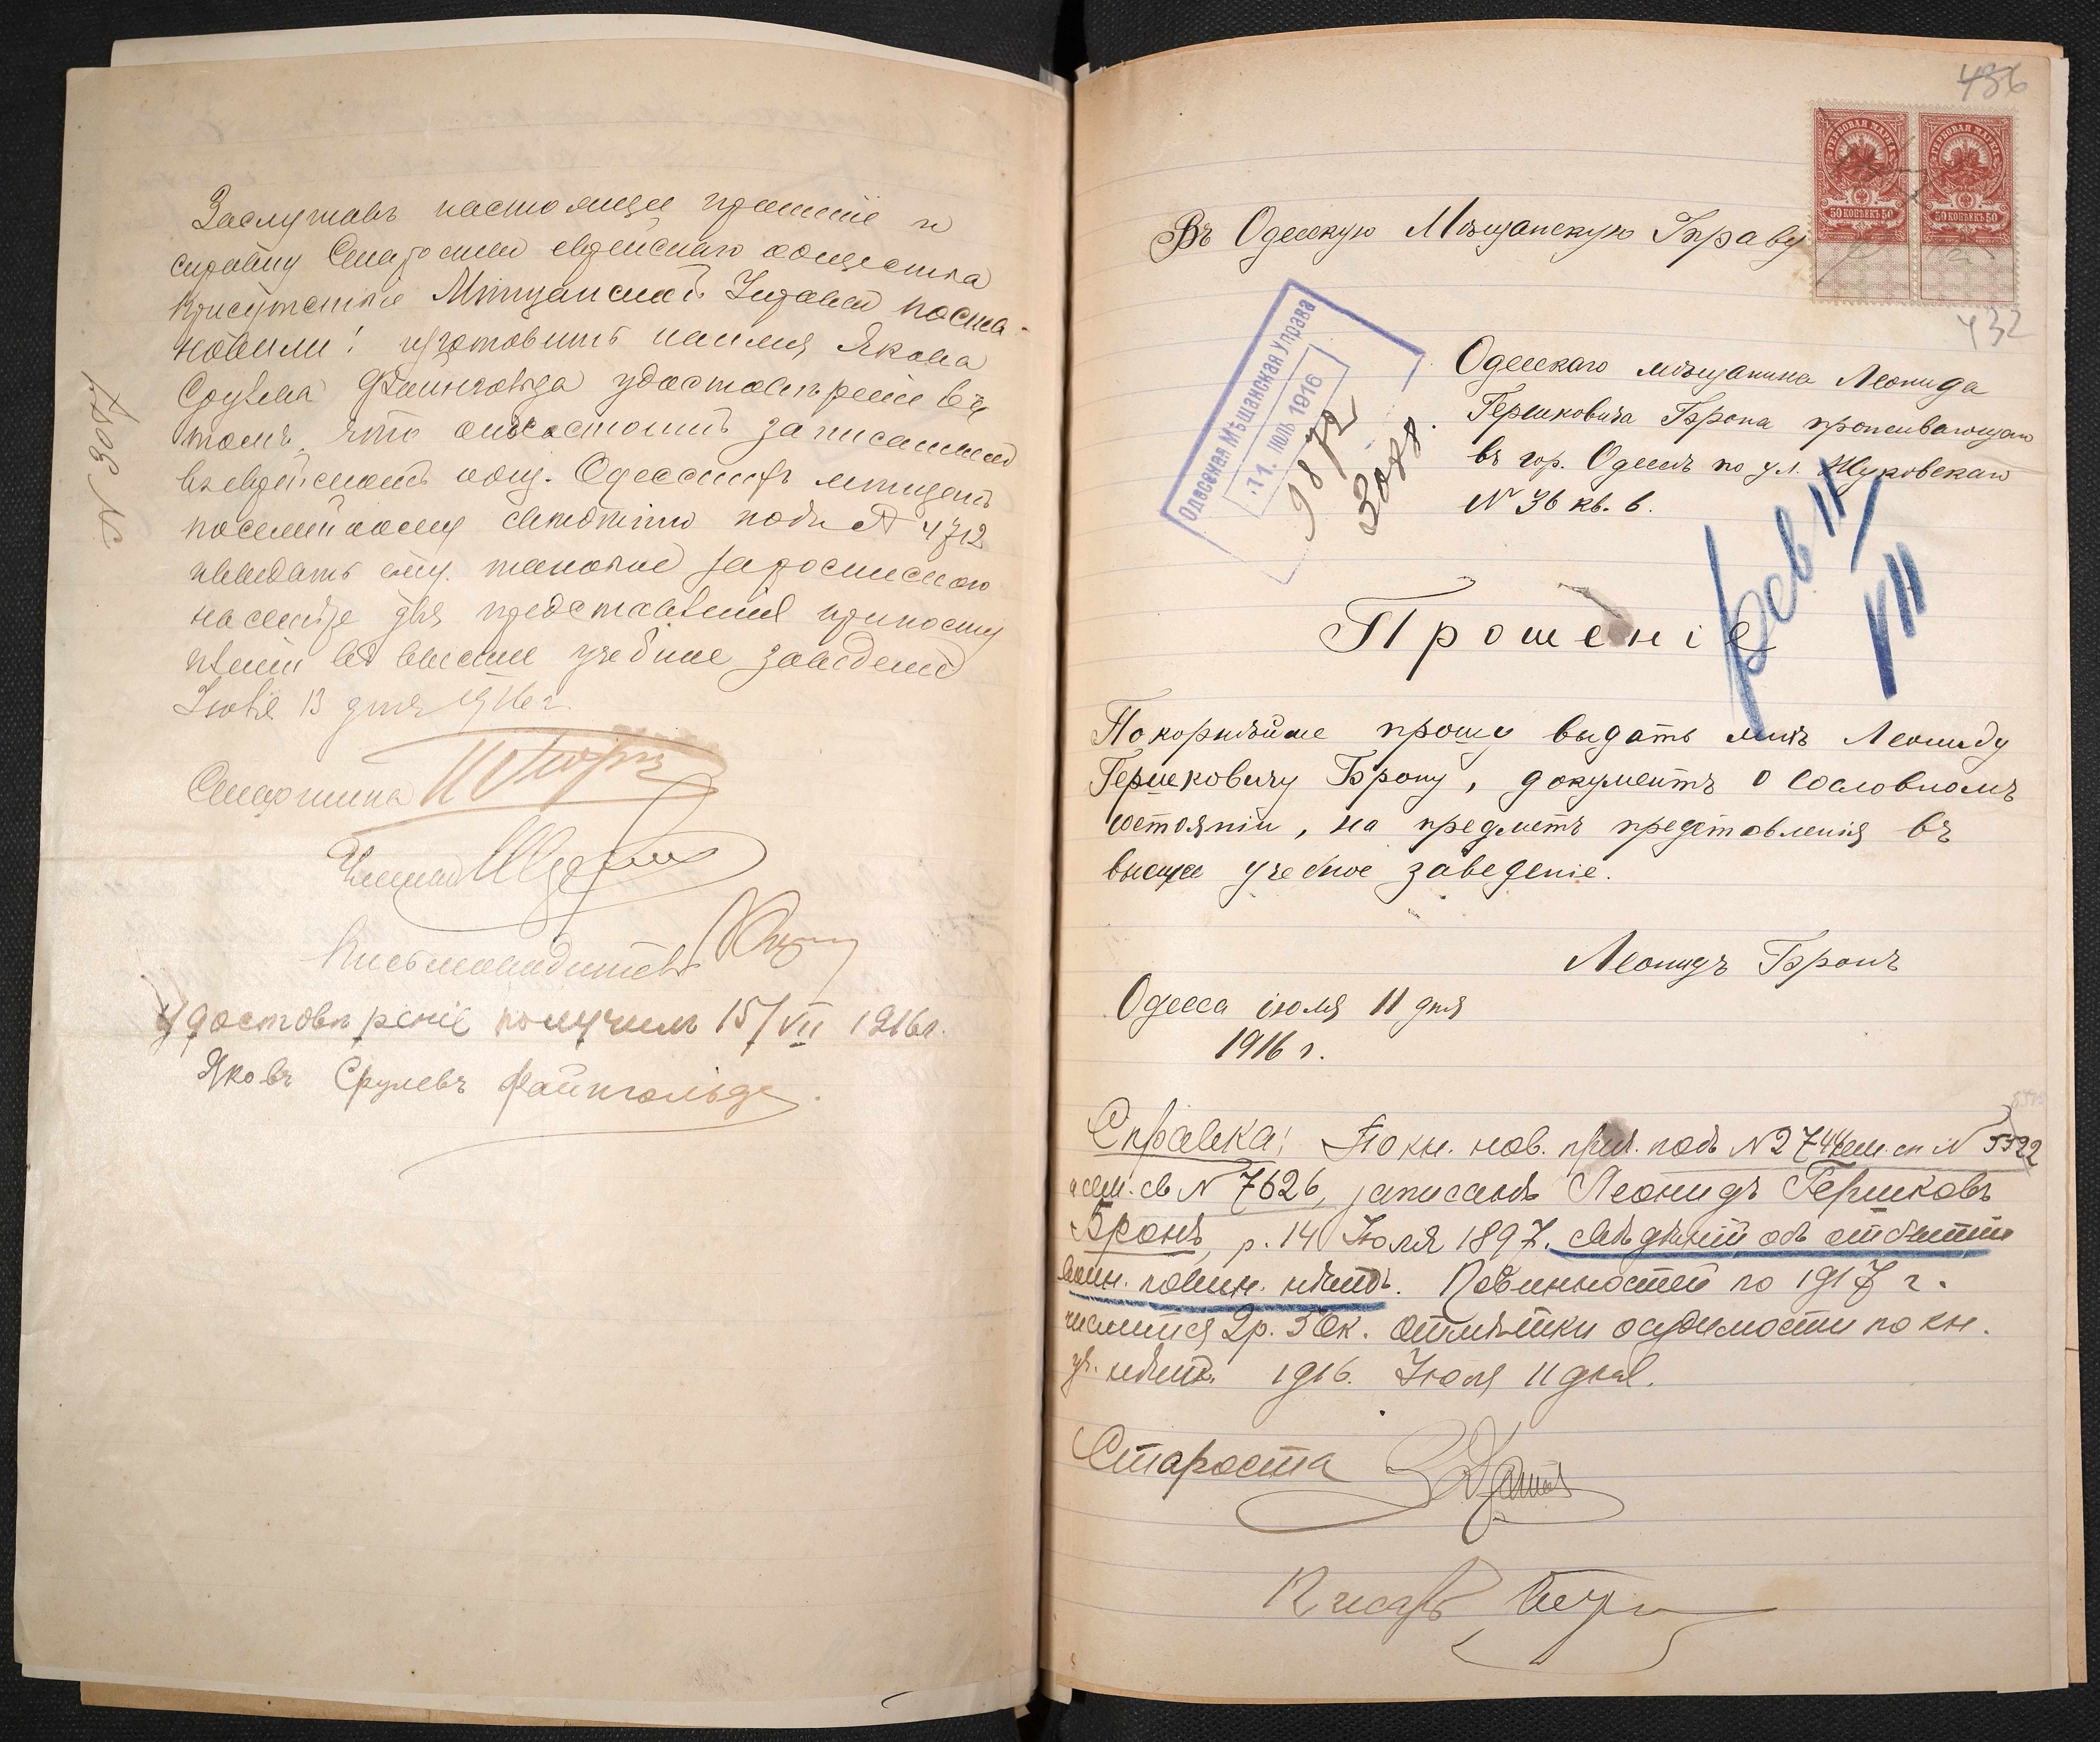 Заслушавъ настоящее прошеніе и
справку Старосты еврейскаго общества
присутствіе Мѣщанской Управы поста-
новили: изготовить на имя Якова
Срулева Файнгольда удостовѣреніе въ
томъ, что онъ состоитъ записаннымъ
въ еврейскомъ общ. Одесскихъ мѣщанъ
по семейному свидѣтію подъ № 4712
и выдать ему таковое
для представленія при посту
пленіи въ высшее учебное заведеніе
Іюля 13 дня 1916 г.
№ 3087
Старшина
Членъ
Письмоводитель
Удостовѣреніе получилъ 15/VII 1916 г.
Яковъ Срулевъ Файнгольдъ.
436
ГЕРБОВАЯ МАРКА ГЕРБОВАЯ МАРКА
50 КОПѢЕКЪ 50 50 КОПѢЕКЪ 50
432
Въ Одесскую Мѣщанскую Управу
Одесская Мѣщанская Управа
11 ІЮЛЬ 1916
9872
3088
Одесскаго мѣщанина Леонида
Гершковича Брона проживающаго
въ гор. Одессѣ по ул. Жуковскаго
№ 36 кв. 6.
11/VII
Прошеніе
Покорнѣйше прошу выдать мнѣ Леониду
Гершковичу Брону, документъ о сословномъ
состояніи, на предметъ представленія въ
высшее учебное заведеніе.
Леонидъ Бронъ
Одесса іюля 11 дня
1916 г.
Справка: По кн. нов. прил. подъ № 2744 сем. сп № 5522
и сем. св № 7626, записанъ Леонидъ Гершковъ
Бронъ, р. 14 Іюля 1897. свѣдѣній объ отбытіи
воин. повин. нѣтъ. Повинностей по 1917 г.
числится 2р. 50к. отмѣтки о судимости по кн.
нѣтъ. 1916. Іюля 11 дня.
Староста
Писарь